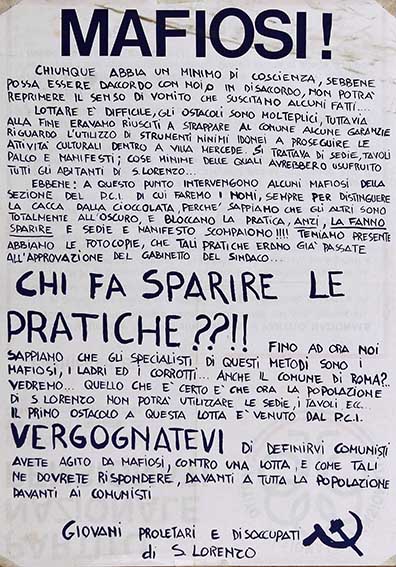 MAFIOSI!
CHIUNQUE ABBIA UN MINIMO DI COSCIENZA, SEBBENE
POSSA ESSERE DACCORDO CON NOI,O IN DISACCORDO, NON POTRÀ
REPRIMERE IL SENSO DI VOMITO CHE SUSCITANO ALCUNI FATTI....
LOTTARE E' DIFFICILE, GLI OSTACOLI SONO MOLTEPLICI, TUTTAVIA
ALLA FINE ERAVAMO RIUSCITI A STRAPPARE AL COMUNE ALCUNE GARANZIE
RIGUARDO L'UTILIZZO DI STRUMENTI MINIMI IDONEI A PROSEGUIRE LE
ATTIVITA' CULTURALI DENTRO A VILLA MERCEDE. SI TRATTAVA DI SEDIE, TAVOLI
PALCO E MANIFESTI; COSE MINIME DELLE QUALI AVREBBERO USUFRUITO
TUTTI GLI ABITANTI DI S.LORENZO...
EBBENE: A QUESTO PUNTO INTERVENGONO ALCUNI MAFIOSI DELLA
SEZIONE DEL P.C.I. DI CUI FAREMO I NOMI, SEMPRE PER DISTINGUERE
LA CACCA DALLA CIOCCOLATA, PERCHE' SAPPIAMO CHE GLI ALTRI SONO
TOTALMENTE ALL'OSCURO, E BLOCCANO LA PRATICA, ANZI, LA FANNO
SPARIRE E SEDIE E MANIFESTO SCOMPAIONO!!!! TENIAMO PRESENTE
ABBIAMO LE FOTOCOPIE, CHE TALI PRATICHE ERANO GIÀ PASSATE
ALL'APPROVAZIONE DEL GABINETTO DEL SINDACO...
CHI FA SPARIRE LE
PRATICHE??!!
FINO AD ORA NOI
SAPPIAMO CHE GLI SPECIALISTI DI QUESTI METODI SONO I
MAFIOSI, I LADRI ED I CORROTTI... ANCHE IL COMUNE DI ROMA?..
VEDREMO... QUELLO CHE E' CERTO E' CHE ORA LA POPOLAZIONE
DI S LORENZO NON POTRÀ UTILIZZARE LE SEDIE, I TAVOLI ECC..
IL PRIMO OSTACOLO A QUESTA LOTTA E' VENUTO DAL P.C.I.
VERGOGNATEVI DI DEFINIRVI COMUNISTI
AVETE AGITO DA MAFIOSI, CONTRO UNA LOTTA, E COME TALI
NE DOVRETE RISPONDERE, DAVANTI A TUTTA LA POPOLAZIONE
DAVANTI AI COMUNISTI
GIOVANI PROLETARI E DISOCCUPATI
di S. LORENZO